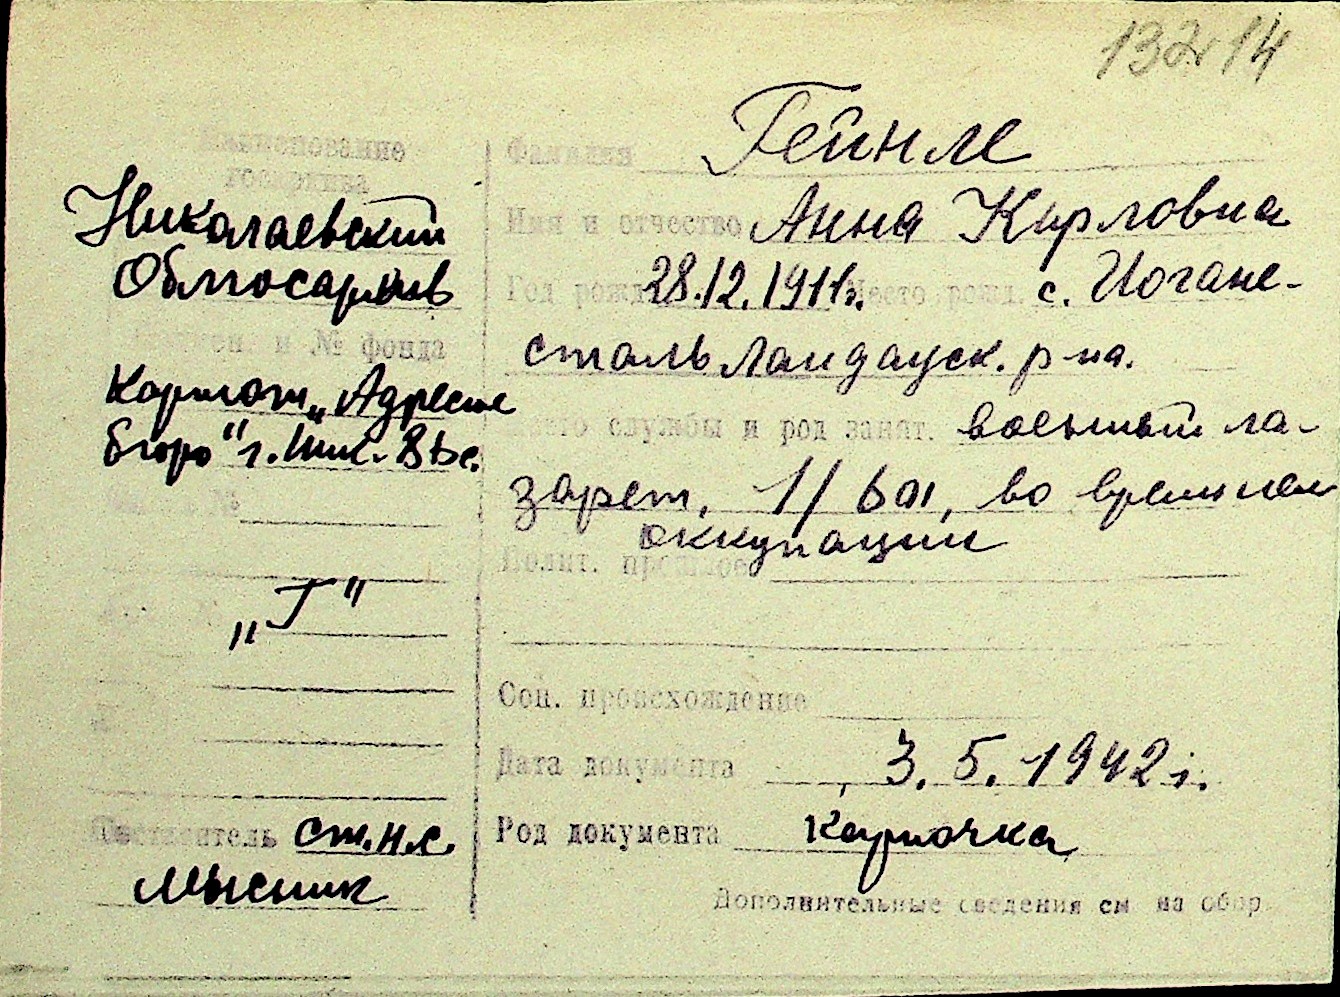 13214
Наименование
госархива
Николаевский
Облгосархив
и № фонда
Картот. „Адресное
бюро" г. Ник-
№
„Г"
Составитель ст.н.с.
Мысник
Фамилия Гейнле
Имя и отчество Анна Карловна
Год рожд. 28.12.1911г. Место рожд. с. Иогане-
сталь Ландауск. р-на.
Место службы и род занят. военный ла-
зарет, 1/ во времен нем
оккупации
Полит. прошлое
Соц. происхождение
Дата документа 3. 5. 1942 г.
Род документа карточка
Дополнительные сведения см на обор